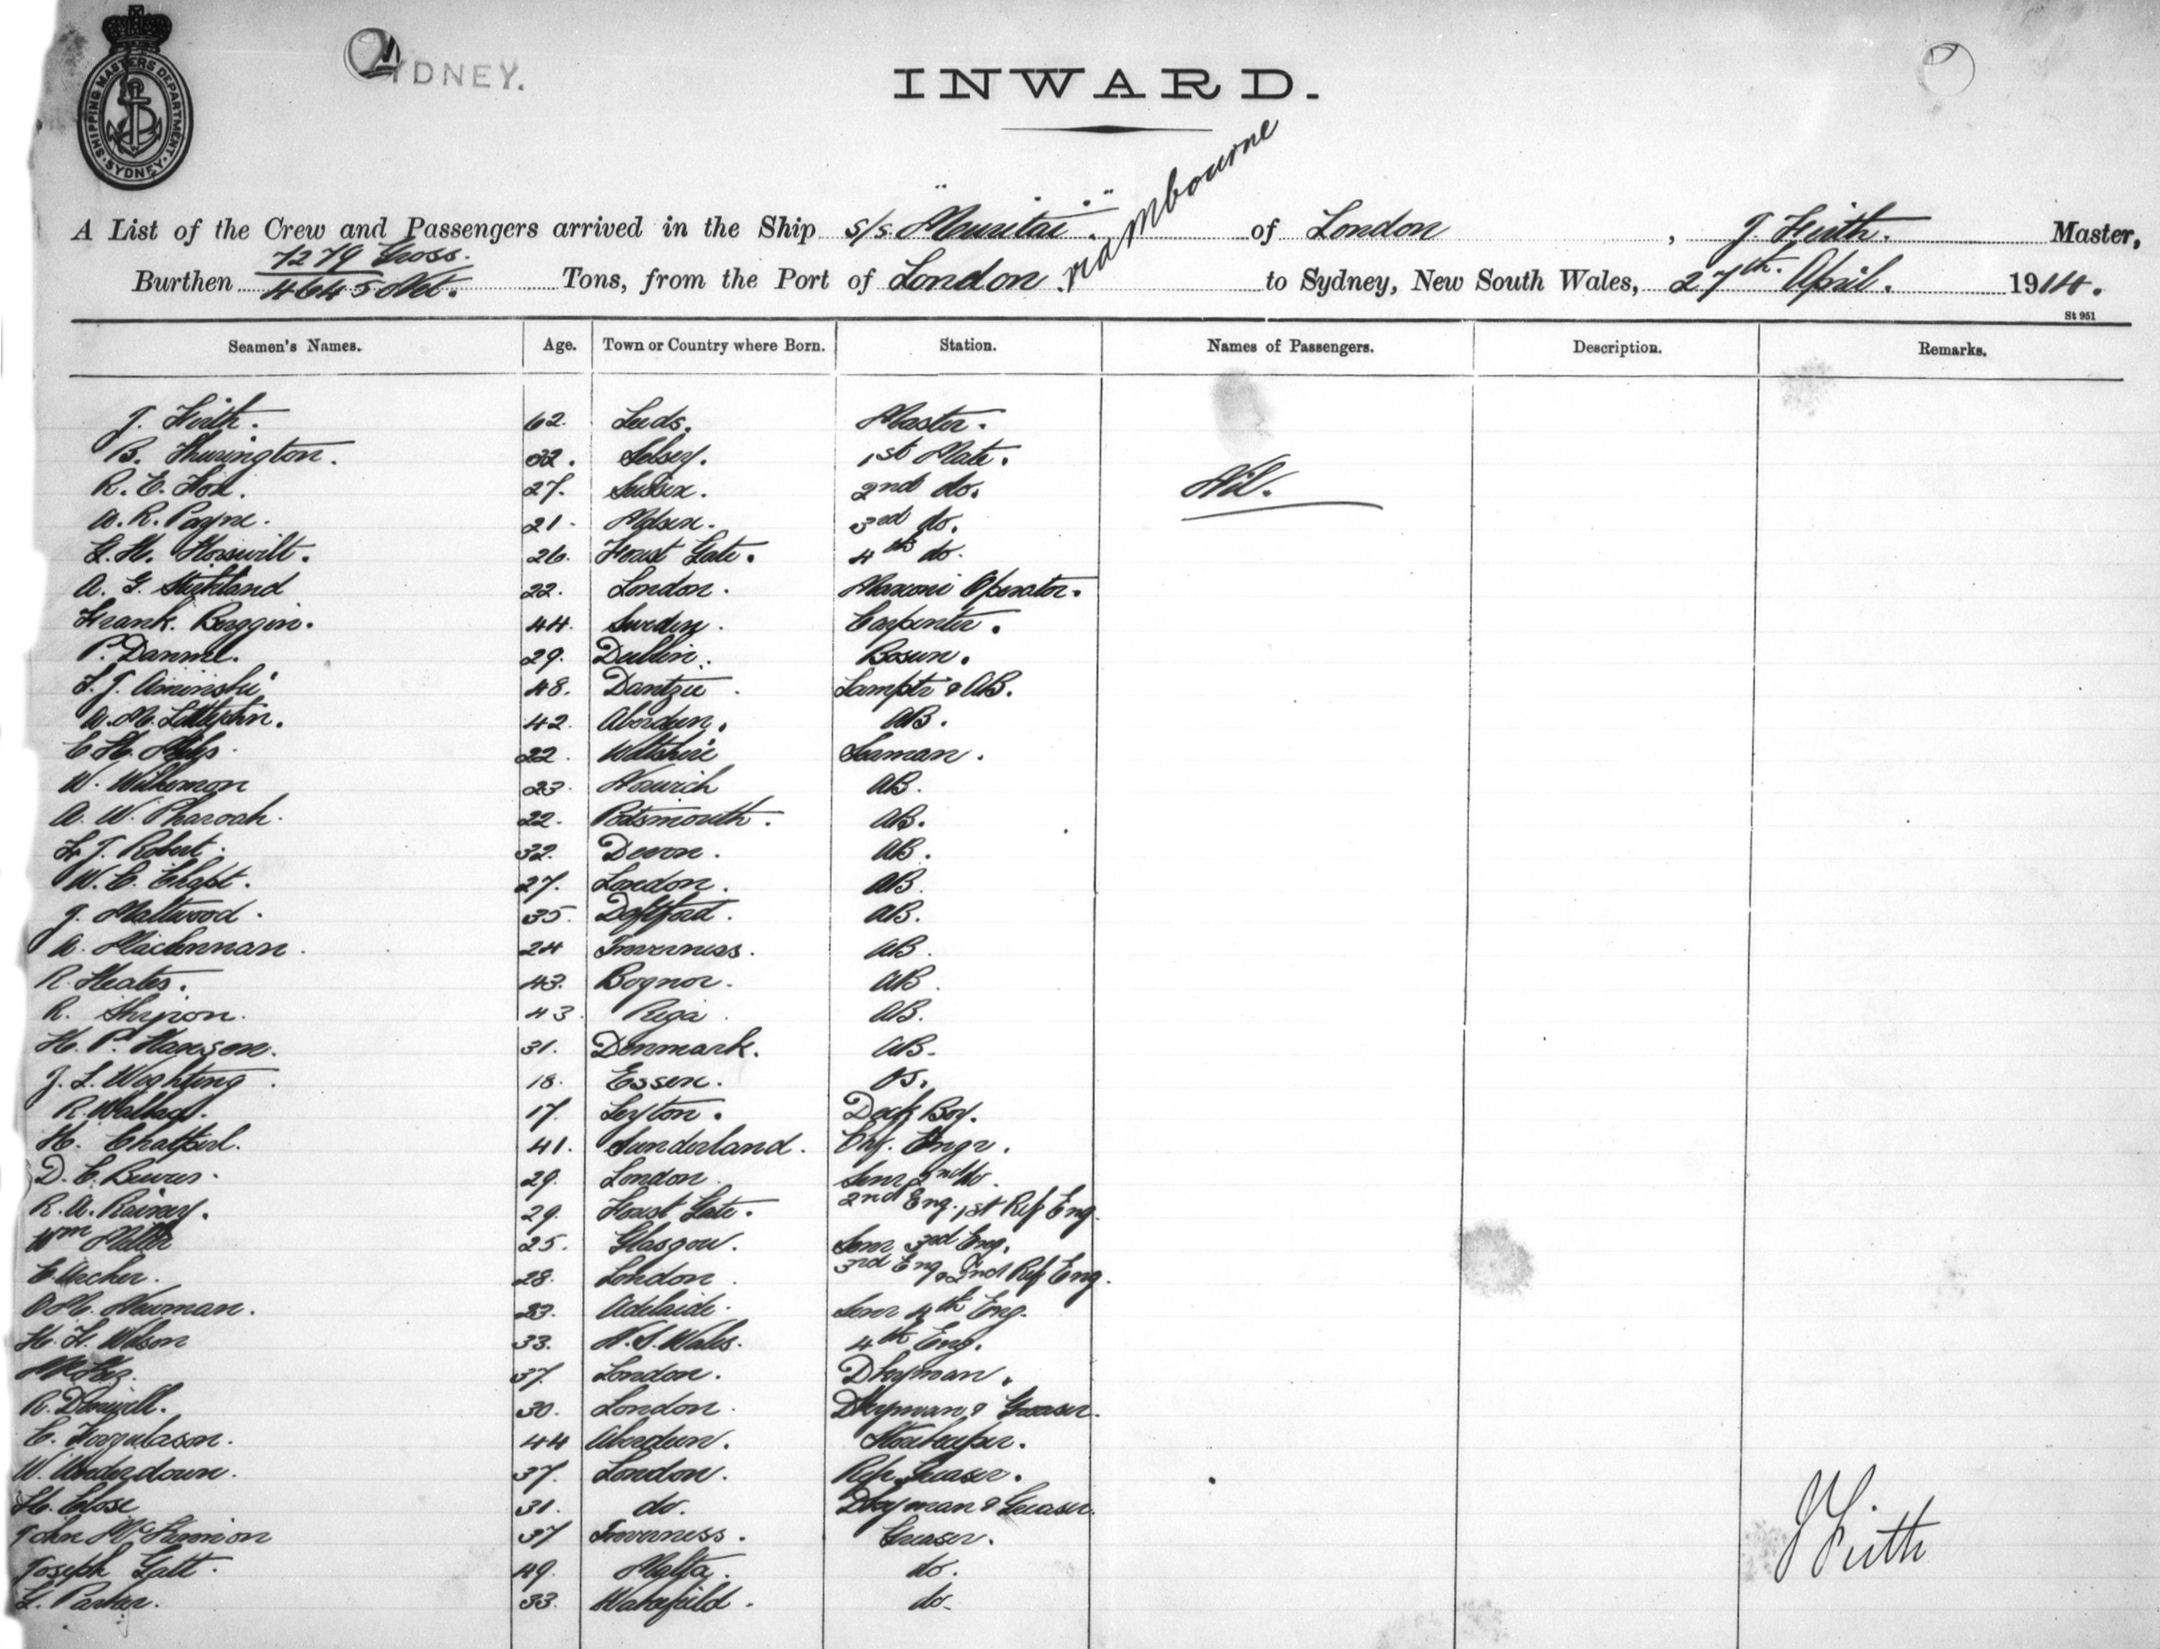 SHIPPING MASTERS DEPARTMENT. SYDNEY.
SYDNEY.
INWARD.
A List of the Crew and Passengers arrived in the Ship s/s. " " via Melbourne of London, J. Firth. Master,
Burthen 7279 Gross. 4645 Net. Tons, from the Port of London to Sydney, New South Wales, 27th. April. 1914.
St 951
Seamen's Names. Age. Town or Country where Born. Station. Names of Passengers. Description. Remarks.
J. Firth. 62. Leeds. Master.
B. 32. Selsey. 1st Mate.
R. E. Fox. 27. Sussex. 2nd do. Nil.
A. R. Payne. 21. 3rd do.
26. Forest Gate. 4th do.
A. G. Strickland 22. London. Marconi Operator.
Frank. Berggin. 44. Sweden. Carpenter.
P. 29. Dublin. Bosun.
48. Dantzic. Lamptr & AB.
42. Aberdeen. AB.
E H. 22. Wiltshire Seaman.
W. 23. Norwich AB.
A. W. Pharoah. 22. Portsmouth. AB.
J. Robert. 32. Devon. AB.
W. E. 27. London. AB.
J. Maltwood. 35. Deptford. AB.
A. MacLennan. 24 Inverness. AB.
R. Heates. 43. Bognor. AB.
R. 43 Riga. AB.
H. P. Hanson. 31. Denmark. AB.
J. L. 18. Essex. OS.
R. 17. Leyton. Deck Boy.
H. 41. Sunderland. Chf. Engr.
D. E. 29. London. Senr 2nd do.
R. A. 29. Forest Gate. 2nd Eng. 1st Ref Eng.
Wm Miller 25. Glasgow. Senr 3rd Eng.
E. Archer. 28. London. 3rd Eng & 2nd Ref Eng.
Newman. 23. Adelaide. Senr 4th Eng.
H. F. Wilson 33. N. S. Wales. 4th Eng.
37. London. Dkyman.
R. 30. London. Dkyman & Greaser.
E. 44 Aberdeen. Storekeeper.
W. Underdown. 37. London. Refr. Greaser.
H. Close 31. do. Dkyman & Greaser.
John 37 Inverness. Greaser.
Joseph Galt. 49. Malta. do.
L. Parker. 33. Wakefield. do.
J Firth